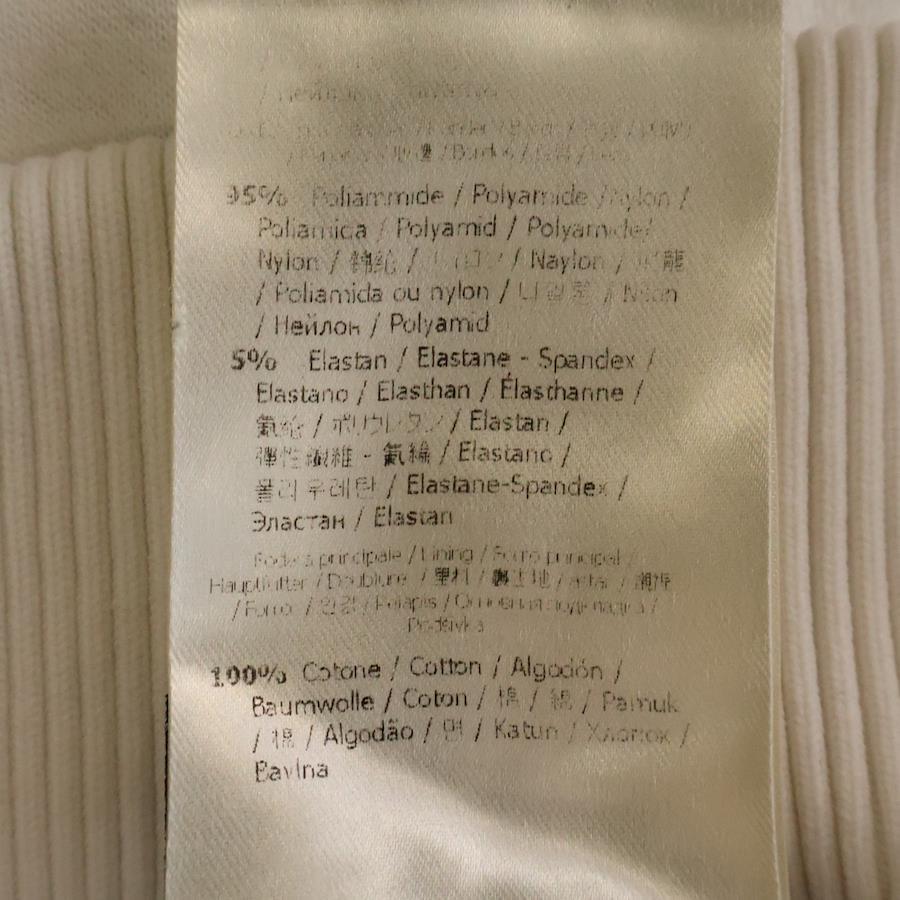 / Нейлон
95% Poliammide / Polyamide / Nylon /
Poliamida / Polyamid / Polyamide /
Nylon / 錦綸 / ナイロン / Naylon / 尼龍
/ Poliamida ou nylon / 나일론 / Nylon
/ Нейлон / Polyamid
5% Elastan / Elastane - Spandex /
Elastano / Elasthan / Élasthanne /
氨綸 / ポリウレタン / Elastan /
彈性纖維 - 氨綸 / Elastano /
폴리우레탄 / Elastane-Spandex /
Эластан / Elastan
Fodera principale / Lining / Forro principal /
Hauptfutter / Doublure / 里料 / / astar /
/ Forro / 안감 / Pelapis / Основная подкладка /
Podšívka
100% Cotone / Cotton / Algodón /
Baumwolle / Coton / 棉 / 綿 / Pamuk
/ 棉 / Algodão / 면 / Katun / Хлопок /
Bavlna